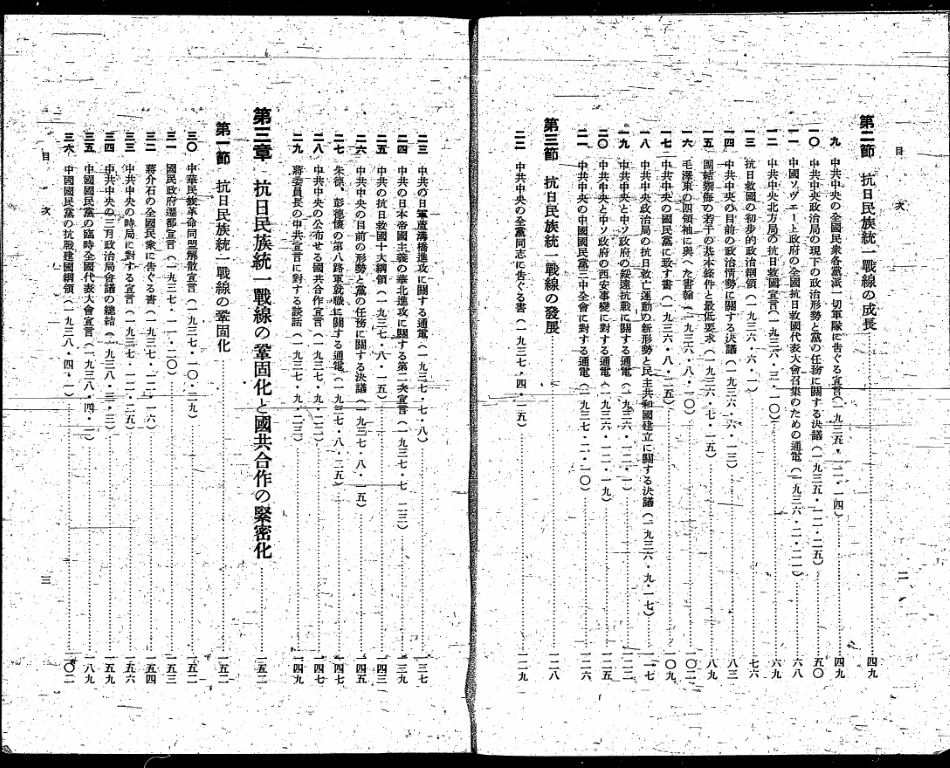 目次
二
第二節 抗日民族統一戰線の成長 四九
九 中共中央の全國民衆各黨派一切軍隊に告ぐる宣言(一九三五・一一・一四) 四九
一〇 中共中央政治局の現下の政治形勢と黨の任務に關する決議(一九三五・一二・二五) 五〇
一一 中國ソヴエート政府の全國抗日救國代表大會召集のための通電(一九三六・二・二一) 六八
一二 中共中央北方局の抗日救國宣言(一九三六・三・一〇) 六九
一三 抗日救國の初步的政治綱領(一九三六・六・一) 七六
一四 中共中央の目前の政治情勢に關する決議(一九三六・六・一三) 八三
一五 團結禦侮の若干の基本條件と最低要求(一九三六・七・一五) 八九
一六 毛澤東の四領袖に與へた書翰(一九三六・八・一〇) 一〇二
一七 中共中央の國民黨に致す書(一九三六・八・二五) 一〇九
一八 中共中央政治局の抗日救亡運動の新形勢と民主共和國建立に關する決議(一九三六・九・一七) 一一七
一九 中共中央と中ソ政府の綏遠抗戰に關する通電(一九三六・一二・一) 一二二
二〇 中共中央と中ソ政府の西安事變に對する通電(一九三六・一二・一九) 一二五
二一 中共中央の中國國民黨三中全會に對する通電(一九三七・二・一〇) 一二六
第三節 抗日民族統一戰線の發展 一二八
二二 中共中央の全黨同志に告ぐる書(一九三七・四・一五) 一二九
二三 中共の日軍蘆溝橋進攻に關する通電(一九三七・七・八) 一三七
二四 中共の日本帝國主義の華北進攻に關する第二次宣言(一九三七・七・二三) 一三九
二五 中共の抗日救國十大綱領(一九三七・八・一五) 一四三
二六 中共中央の目前の形勢と黨の任務に關する決議(一九三七・八・一五) 一四五
二七 朱德、彭德懷の第八路軍就職に關する通電(一九三七・八・二五) 一四七
二八 中共中央の公布せる國共合作宣言(一九三七・九・二二) 一四七
二九 蔣委員長の中共宣言に對する談話(一九三七・九・二三) 一四九
第三章 抗日民族統一戰線の鞏固化と國共合作の緊密化 一五二
第一節 抗日民族統一戰線の鞏固化 一五二
三〇 中華民族革命同盟解散宣言(一九三七・一〇・二九) 一五二
三一 國民政府遷都宣言(一九三七・一一・二〇) 一五三
三二 蔣介石の全國民衆に告ぐる書(一九三七・一二・一六) 一五四
三三 中共中央の時局に對する宣言(一九三七・一二・二五) 一五六
三四 中共中央の三月政治局會議の總結(一九三八・三・) 一五九
三五 中國國民黨の臨時全國代表大會宣言(一九三八・四・一) 一八九
三六 中國國民黨の抗戰建國綱領(一九三八・四・一) 二〇二
目次
三